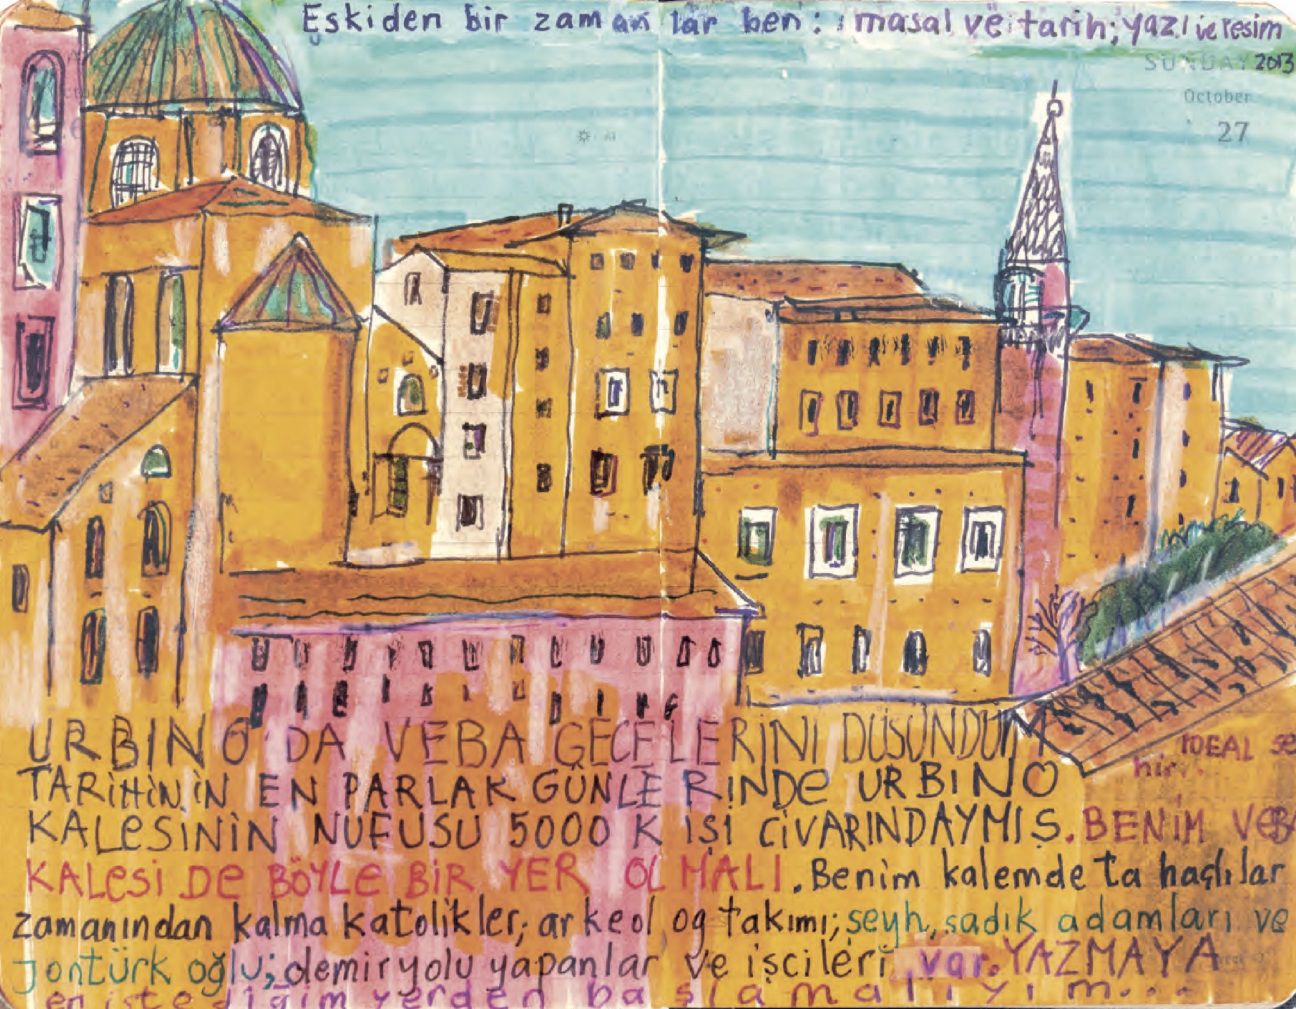 Eskiden bir zamanlar ben: masal ve tarih; yazı ve resim
SUNDAY 2013
October
27
URBINO'DA VEBA GECELERİNİ DÜŞÜNDÜM
IDEAL şe
hir..
TARİHİNİN EN PARLAK GÜNLERİNDe URBINO
KALeSİNİN NÜFUSU 5000 KİŞİ CİVARINDAYMIŞ. BENİM VEB
KALeSİ De BÖYLe BİR YER OLMALI. Benim kalemde ta haçlılar
zamanından kalma katolikler, arkeolog takımı; şeyh, sadık adamları ve
jöntürk oğlu; demiryolu yapanlar ve işcileri var. YAZMAYA
en istediğim yerden başlamalıyım...